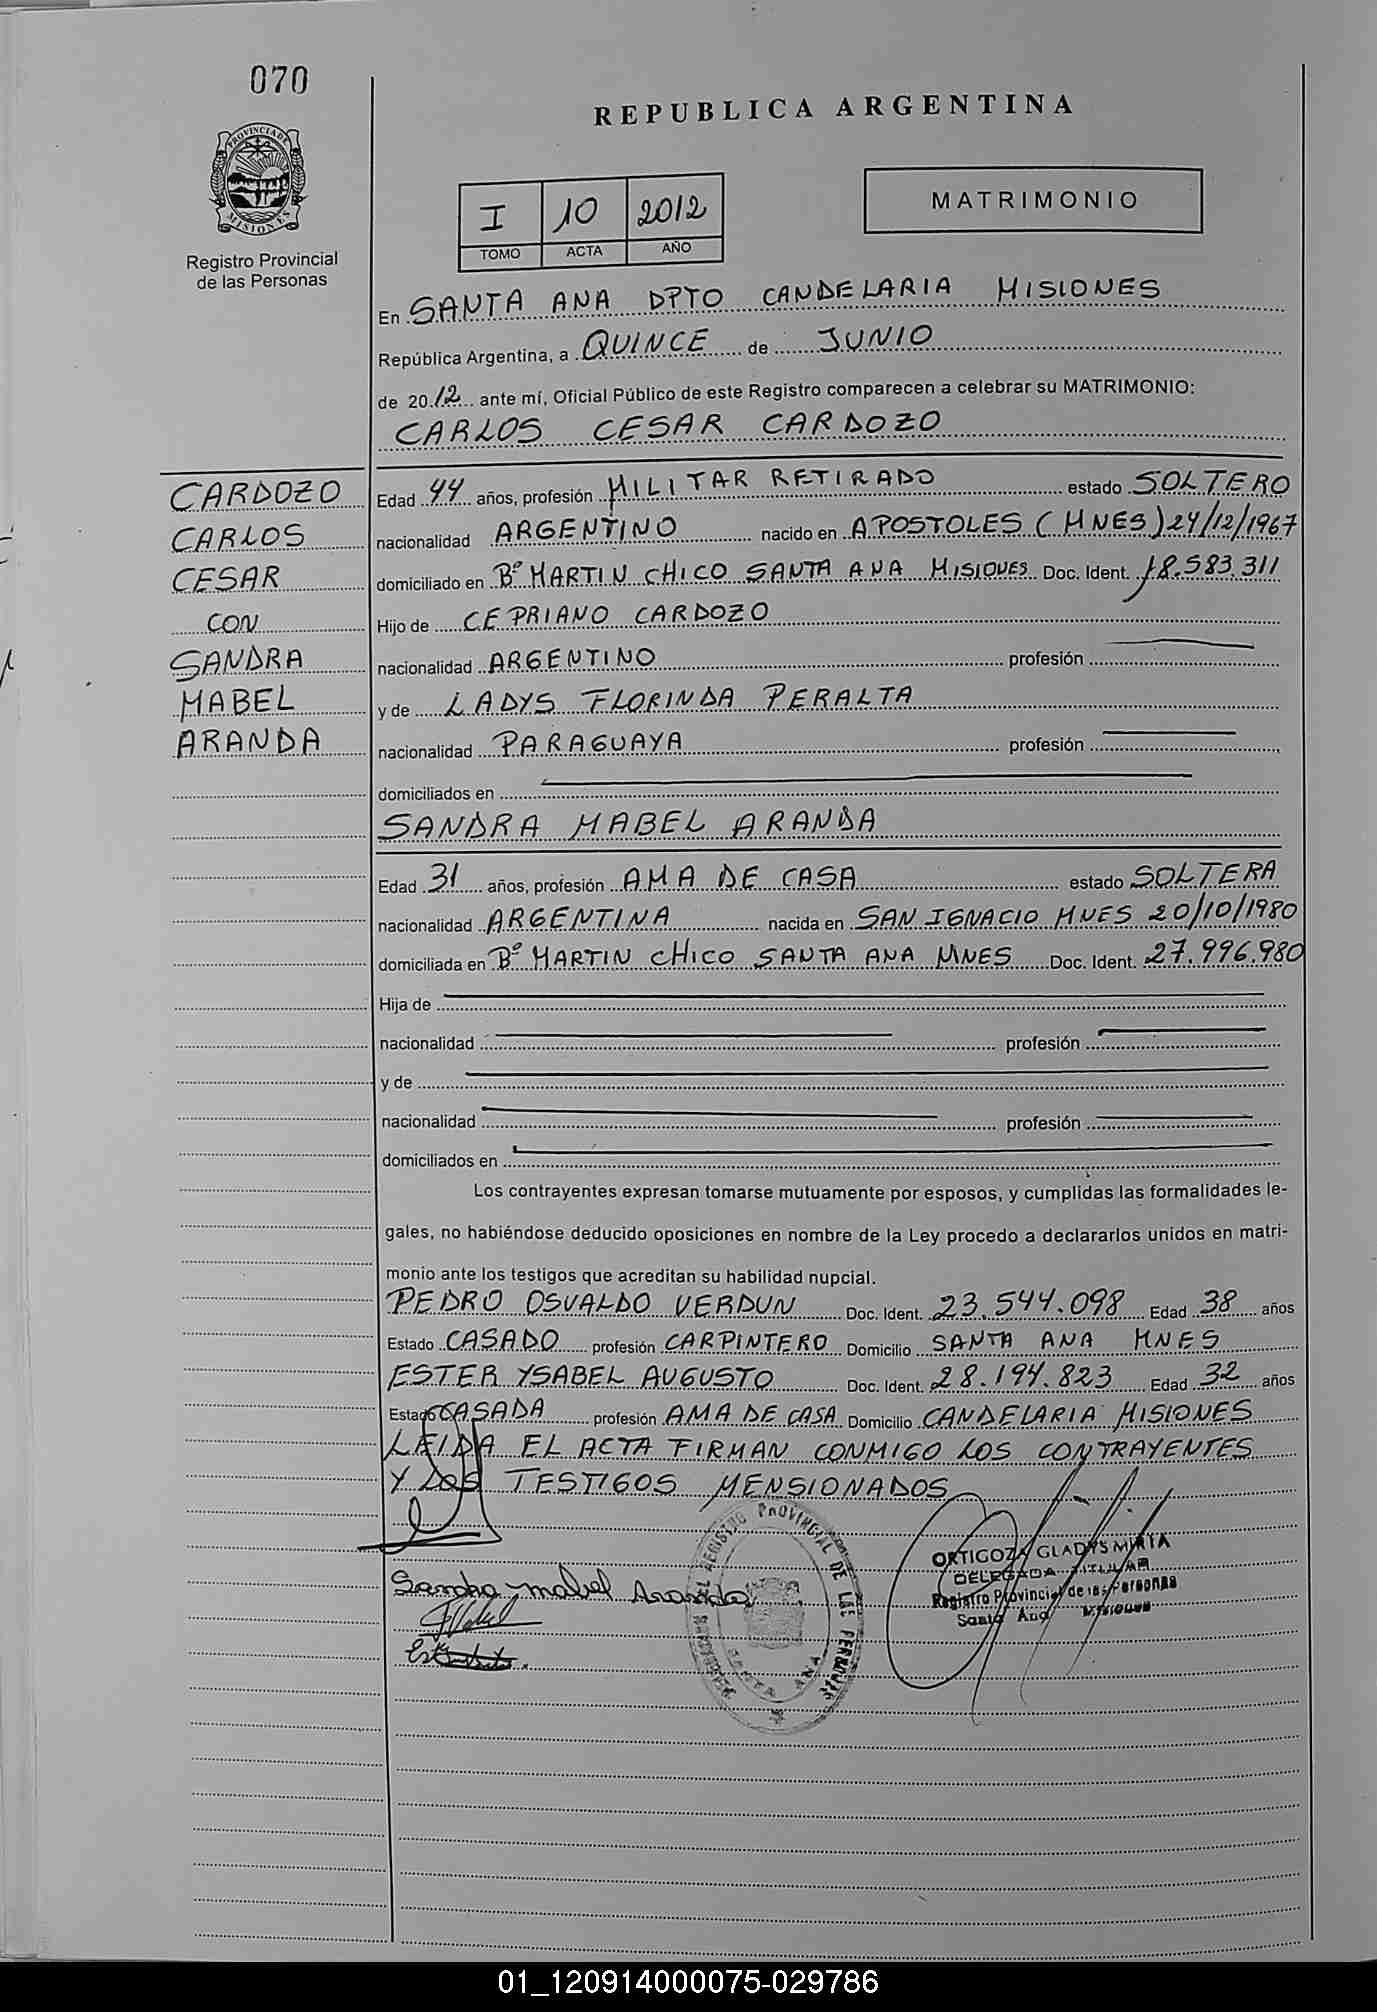 070
REPUBLICA ARGENTINA
PROVINCIA DE
MISIONES
Registro Provincial
de las Personas
I 10 2012
TOMO ACTA AÑO
MATRIMONIO
En SANTA ANA DPTO CANDELARIA MISIONES
República Argentina, a QUINCE de JUNIO
de 2012 ante mí, Oficial Público de este Registro comparecen a celebrar su MATRIMONIO:
CARLOS CESAR CARDOZO
CARDOZO
CARLOS
CESAR
CON
SANDRA
MABEL
ARANDA
Edad 44 años, profesión MILITAR RETIRADO estado SOLTERO
nacionalidad ARGENTINO nacido en APOSTOLES (MNES) 24/12/1967
domiciliado en Bº MARTIN CHICO SANTA ANA MISIONES Doc. Ident. 18.583.311
Hijo de CEPRIANO CARDOZO
nacionalidad ARGENTINO profesión
y de LADYS FLORINDA PERALTA
nacionalidad PARAGUAYA profesión
domiciliados en
SANDRA MABEL ARANDA
Edad 31 años, profesión AMA DE CASA estado SOLTERA
nacionalidad ARGENTINA nacida en SAN IGNACIO MNES 20/10/1980
domiciliada en Bº MARTIN CHICO SANTA ANA MNES Doc. Ident. 27.996.980
Hija de
nacionalidad profesión
y de
nacionalidad profesión
domiciliados en
Los contrayentes expresan tomarse mutuamente por esposos, y cumplidas las formalidades le-
gales, no habiéndose deducido oposiciones en nombre de la Ley procedo a declararlos unidos en matri-
monio ante los testigos que acreditan su habilidad nupcial.
PEDRO OSVALDO VERDUN Doc. Ident. 23.544.098 Edad 38 años
Estado CASADO profesión CARPINTERO Domicilio SANTA ANA MNES
ESTER YSABEL AUGUSTO Doc. Ident. 28.194.823 Edad 32 años
Estado CASADA profesión AMA DE CASA Domicilio CANDELARIA MISIONES
LEIDA EL ACTA FIRMAN CONMIGO LOS CONTRAYENTES
Y LOS TESTIGOS MENSIONADOS
Sandra Mabel Aranda
REGISTRO PROVINCIAL DE LAS PERSONAS
SANTA ANA
ORTIGOZA GLADYS MIRTA
DELEGADA TITULAR
Registro Provincial de las Personas
Santa Ana Misiones
01_120914000075-029786